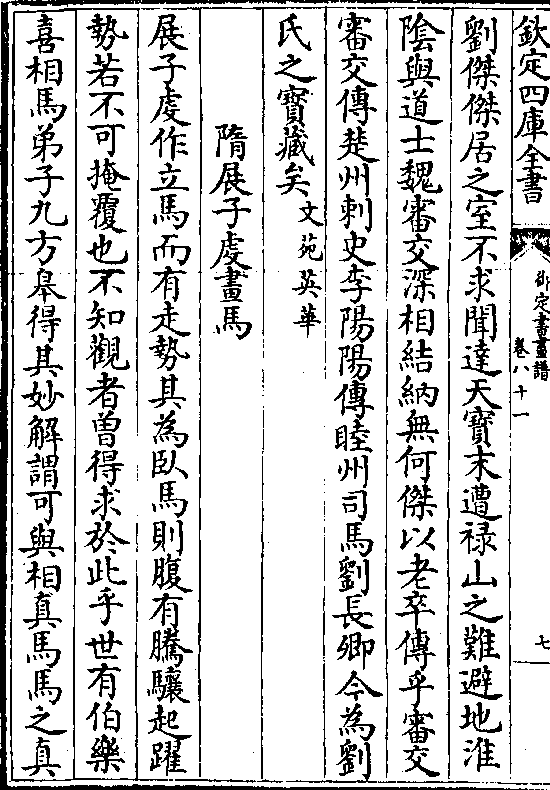 欽定四庫全書
御定書畫譜
卷八十一
七
劉傑傑居之室不求聞達天寶末遭禄山之難避地淮
陰與道士魏審交深相結納無何傑以老卒傳乎審交
審交傳楚州刺史李陽陽傳睦州司馬劉長卿今為劉
氏之寶藏矣文苑英華
隋展子虔畫馬
展子虔作立馬而有走勢其為臥馬則腹有騰驤起躍
勢若不可掩覆也不知觀者曽得求於此乎世有伯樂
喜相馬弟子九方皋得其妙解謂可與相真馬馬之真